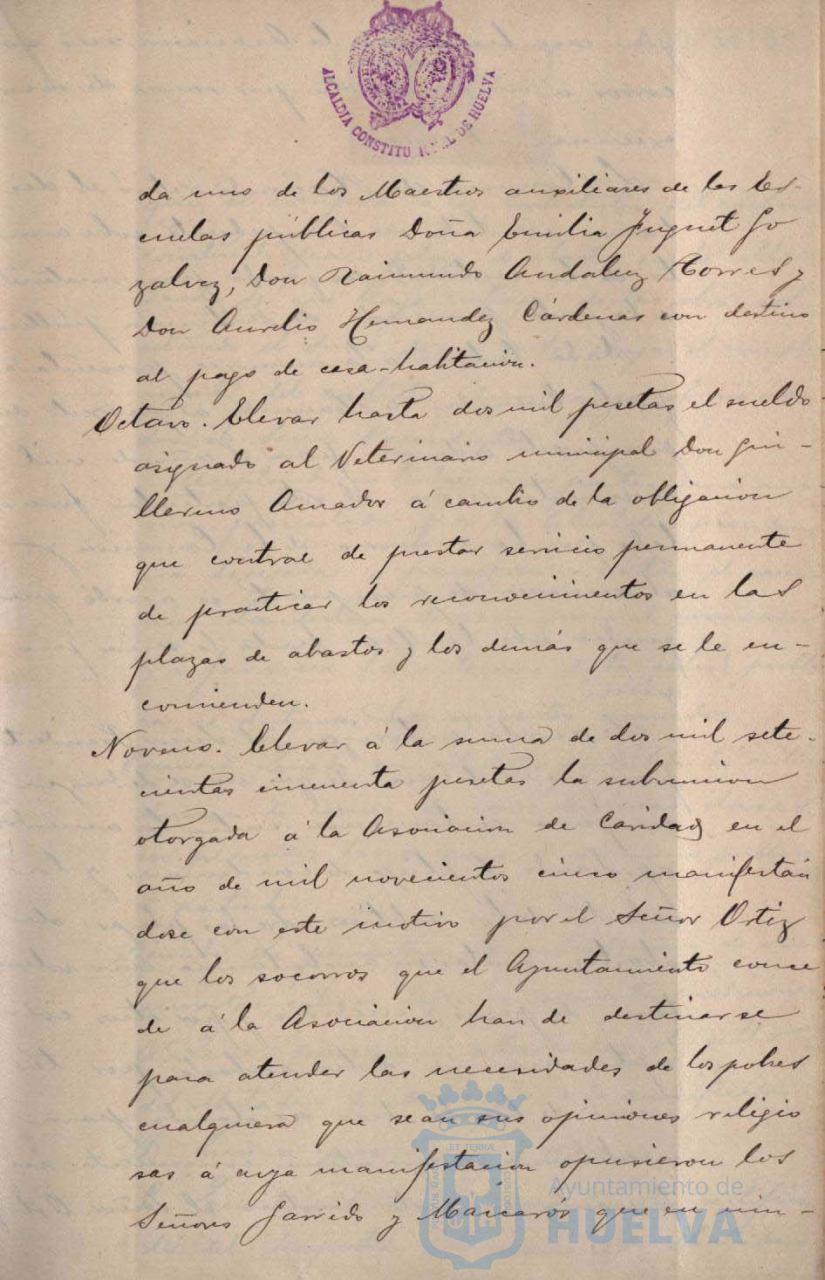 ALCALDIA CONSTITU N L DE HUELVA
da uno de los Maestros auxiliares de las Es-
cuelas públicas Doña Emilia Juguet Go
zalvez, Don Raimundo Andaluz Torres y
Don Aurelio Hernandez Cárdenas con destino
al pago de casa-habitacion.
Octavo. Elevar hasta dos mil pesetas el sueldo
asignado al Veterinario municipal Don Gui-
llermo Amador á cambio de la obligacion
que contrae de prestar servicio permanente
de practicar los reconocimientos en las
plazas de abastos y los demás que se le en-
comienden.
Noveno. Elevar á la suma de dos mil sete-
cientas cincuenta pesetas la subvencion
otorgada á la Asociacion de Caridad en el
año de mil novecientos cinco manifestán
dose con este motivo por el Señor Ortiz
que los socorros que el Ayuntamiento conce
de á la Asociacion han de destinarse
para atender las necesidades de los pobres
cualquiera que sean sus opiniones religio
sas á cuya manifestacion opusieron los
Señores Garrido y que en nin-
Ayuntamiento de
HUELVA